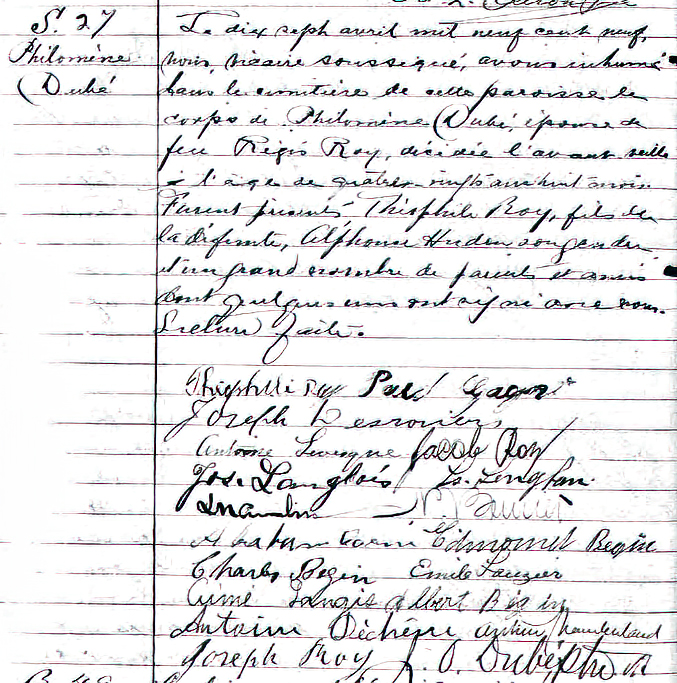 S. 27
Philomène
Dubé
Le dix sept avril mil neuf cent neuf,
nous vicaire soussigné, avons inhumé
dans le cimetière de cette paroisse le
corps de Philomène Dubé, épouse de
feu Régis Roy, décédée l'avant veille
à l'age de quatre-vingts ans huit mois.
Furent présents Théophile Roy, fils de
la défunte, Alphonse Hudon son gendre
et un grand nombre de parents et amis
dont quelques uns ont signé avec nous.
Lecture faite.
Théophile Roy Paul Gagné
Joseph Desrosiers
Antoine Levesque Jacob Roy
Jos. Langlois
Edmond Begin
Charles Begin Emile Lauzier
Aimé Langis Albert Bégin
Antoine Déchène Arthur
Joseph Roy J. O. Dubé ptre